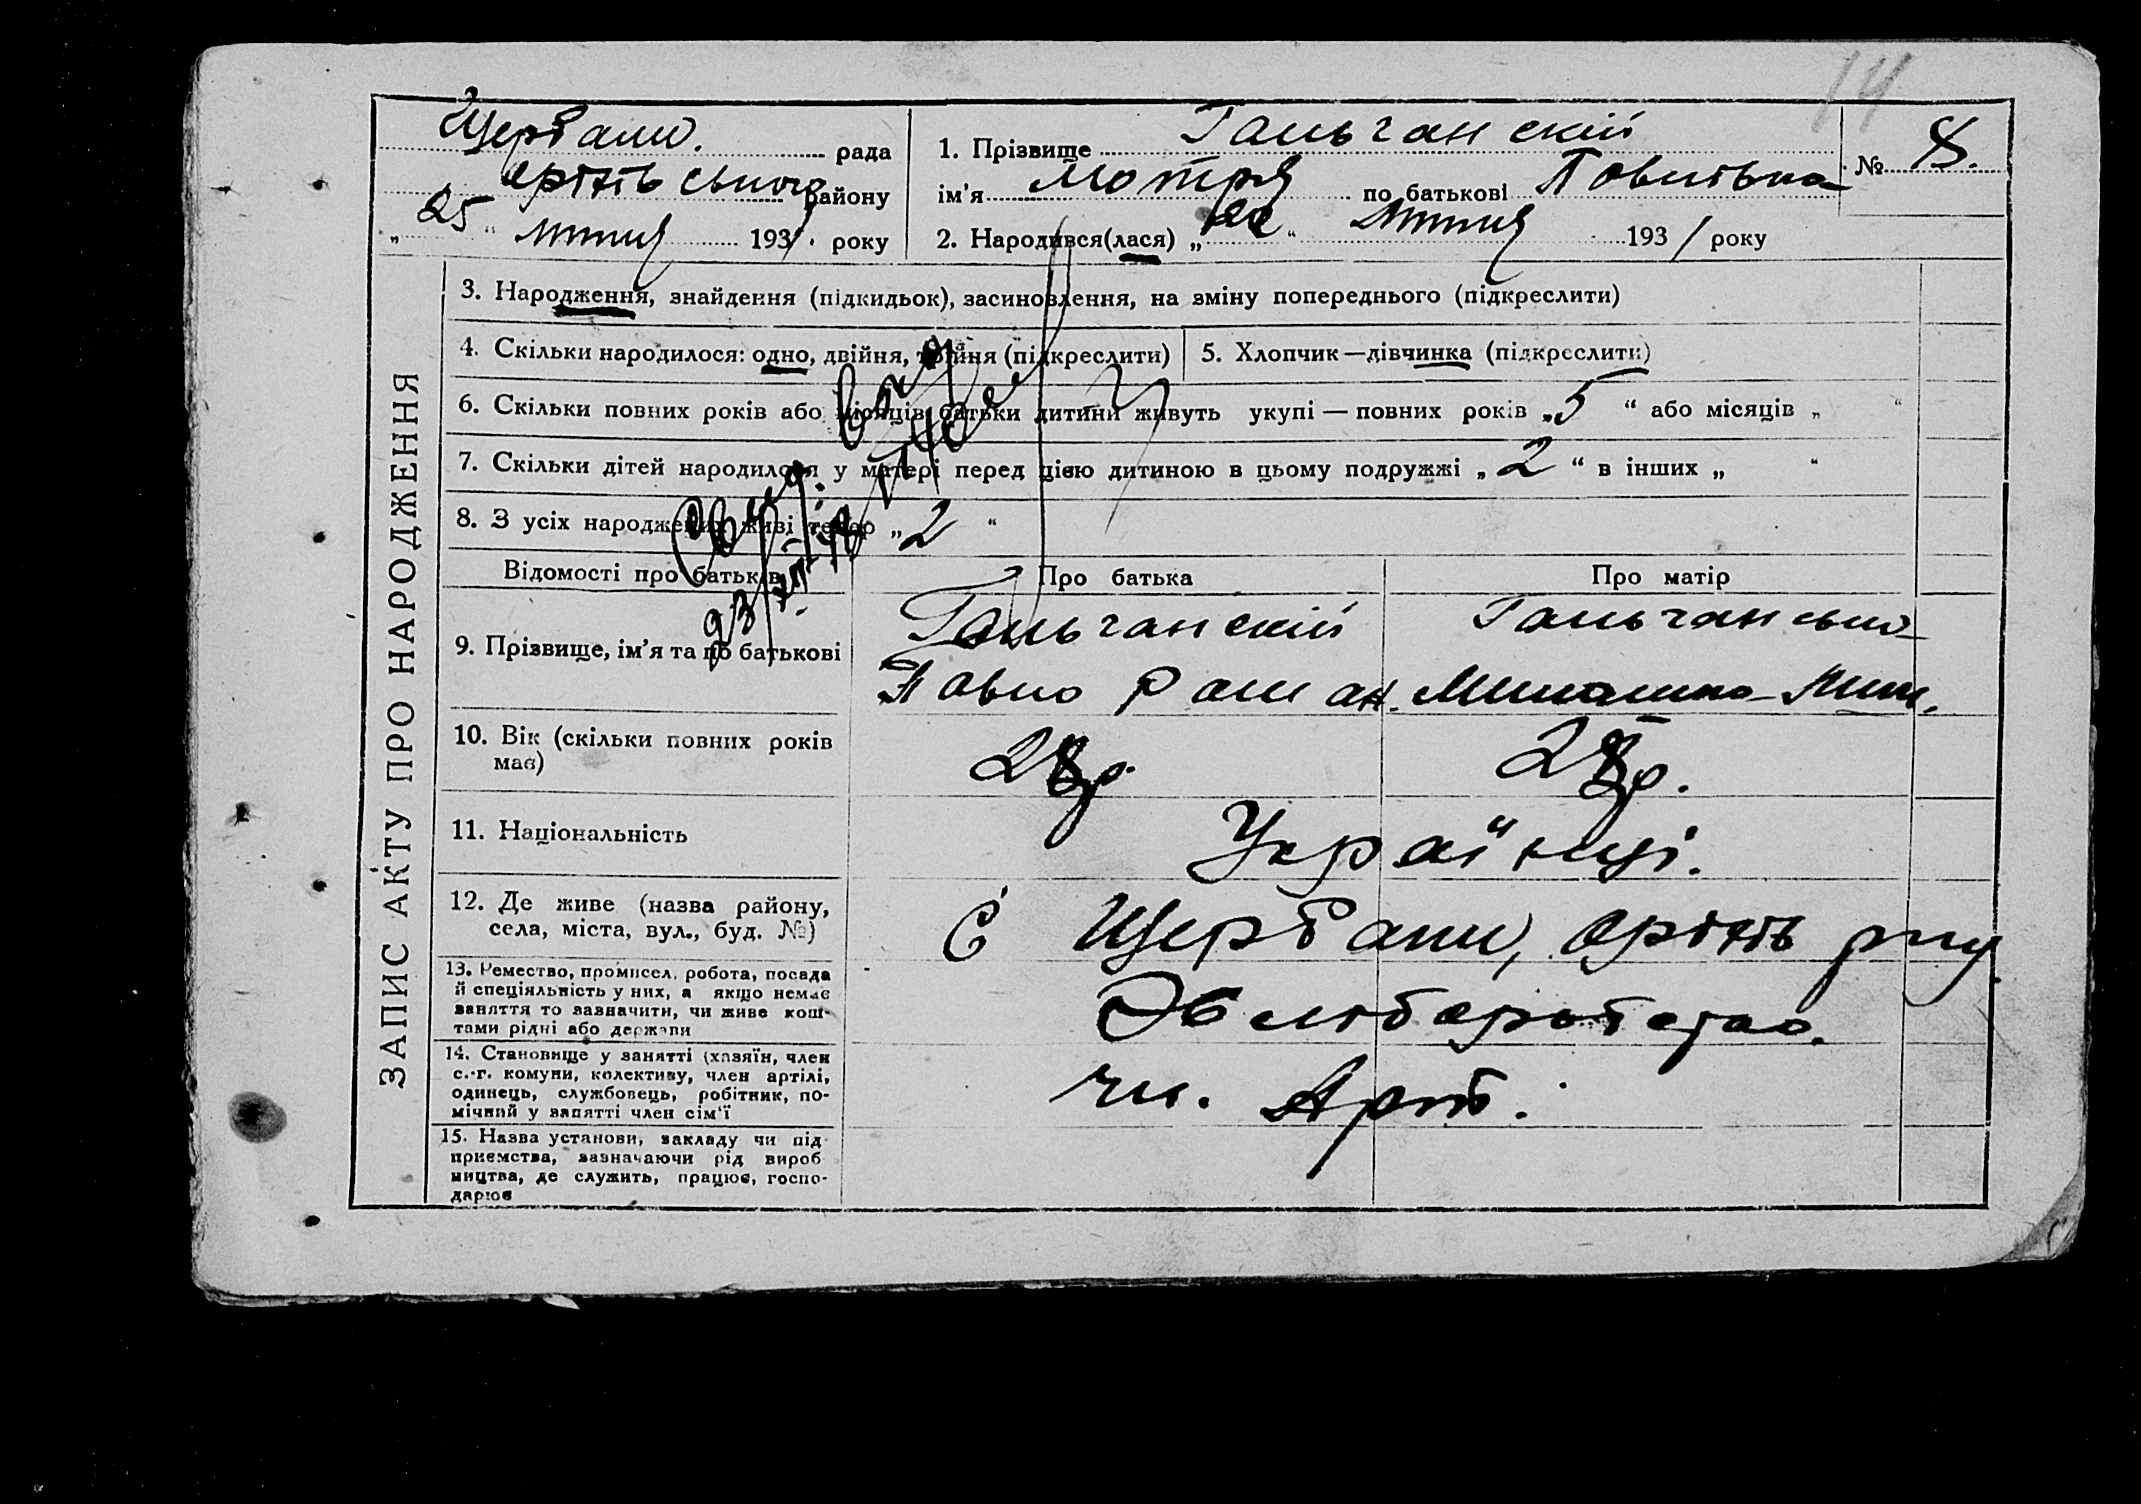 14
Щербани. рада
району
„ 25 “ липня 1931 року
1. Прізвище Гальчанский № 8.
ім’я Мотря по батькові Павлівна
2. Народився(лася) „ 22 “ липня 1931 року
ЗАПИС АКТУ ПРО НАРОДЖЕННЯ
3. Народження, знайдення (підкидьок), засиновлення, на зміну попереднього (підкреслити)
4. Скільки народилося: одно, двійня, трійня (підкреслити)
5. Хлопчик—дівчинка (підкреслити)
6. Скільки повних років або місяців батьки дитини живуть укупі — повних років „ 5 “ або місяців „ “
7. Скільки дітей народилося у матері перед цією дитиною в цьому подружжі „ 2 “ в інших „ “
8. З усіх народжених живі тепер „ 2 “
Відомості про батьків Про батька Про матір
9. Прізвище, ім’я та по батькові
Гальчанский Гальчанська
Павло Роман.
10. Вік (скільки повних років має)
28 р. 28 р.
11. Національність
Українці.
12. Де живе (назва району, села, міста, вул., буд. №)
С Щербани,
13. Ремество, промисел, робота, посада
й спеціяльність у них, а якщо немає
заняття то зазначити, чи живе кош-
тами рідні або держави
14. Становище у занятті (хазяїн, член
с.-г. комуни, колективу, член артілі,
одинець, службовець, робітник, по-
мічний у занятті член сім’ї
чл. Арт.
15. Назва установи, закладу чи під
приємства, зазначаючи рід вироб
ництва, де служить, працює, госпо-
дарює